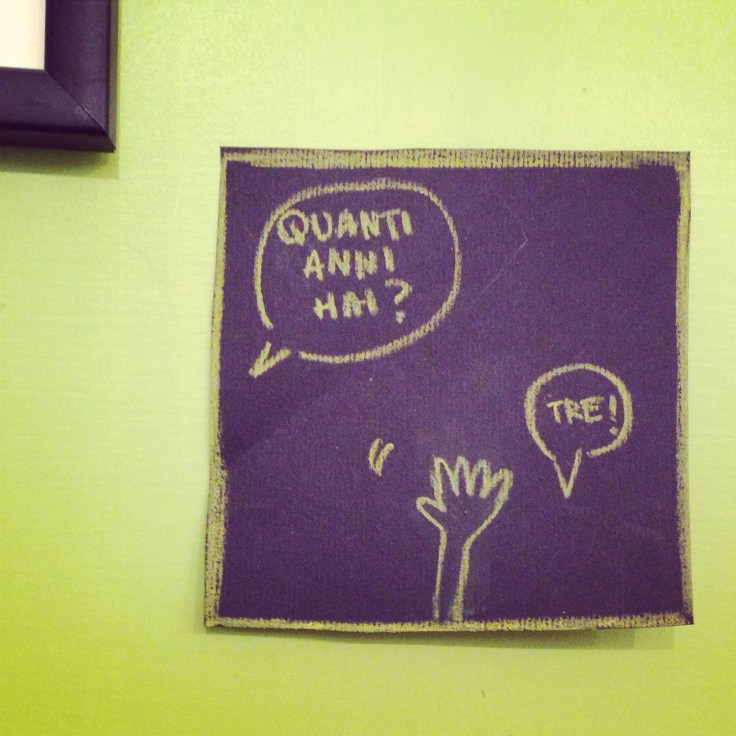 QUANTI
ANNI
HAI?
TRE!